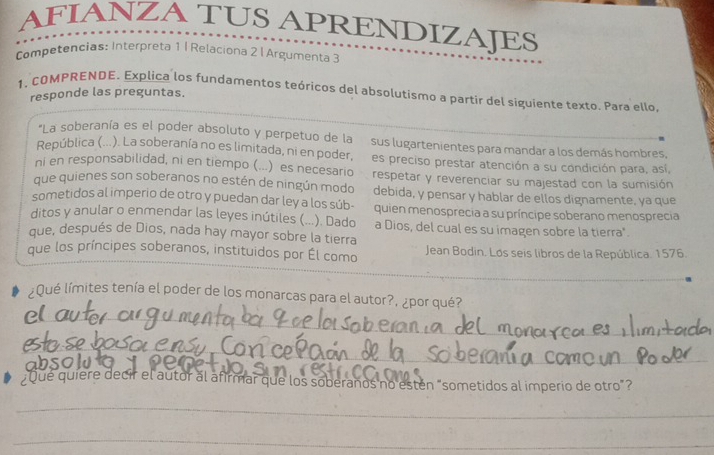 AFIANZA TUS APRENDIZAJES
Competencias: Interpreta 1 | Relaciona 2 | Argumenta 3
1. COMPRENDE. Explica los fundamentos teóricos del absolutismo a partir del siguiente texto. Para ello,
responde las preguntas.
"La soberanía es el poder absoluto y perpetuo de la
República (...). La soberanía no es limitada, ni en poder,
ni en responsabilidad, ni en tiempo (...) es necesario
que quienes son soberanos no estén de ningún modo
sometidos al imperio de otro y puedan dar ley a los súb-
ditos y anular o enmendar las leyes inútiles (...). Dado
que, después de Dios, nada hay mayor sobre la tierra
que los príncipes soberanos, instituidos por Él como
sus lugartenientes para mandar a los demás hombres,
es preciso prestar atención a su condición para, así,
respetar y reverenciar su majestad con la sumisión
debida, y pensar y hablar de ellos dignamente, ya que
quien menosprecia a su príncipe soberano menosprecia
a Dios, del cual es su imagen sobre la tierra".
Jean Bodin. Los seis libros de la República. 1576.
¿Qué límites tenía el poder de los monarcas para el autor?, ¿por qué?
el autor argumentaba que la soberania del monarca es ilimitada
esto se basa en su concepción de la soberanía como un Poder
absoluto y perpetuo, sin restricciones
¿Qué quiere decir el autor al afirmar que los soberanos no estén "sometidos al imperio de otro"?